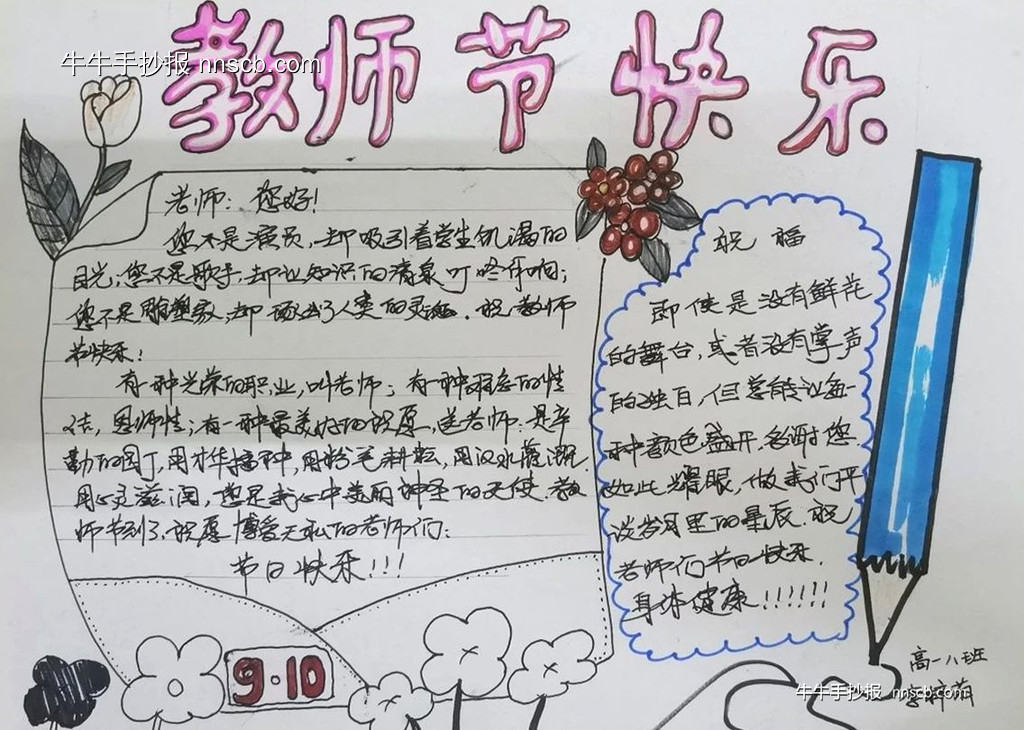 教师节快乐
牛牛手抄报 nnscb.com
老师：您好！
您不是演员，却吸引着学生饥渴的
目光；您不是歌手，却让知识的清泉叮咚作响；
您不是雕塑家，却 人类的灵魂．祝教师
节快乐！
有一种光荣的职业，叫老师；有一种 的情
结，恩师情；有一种最美好的祝愿，送老师．是辛
勤的园丁，用才华播种，用粉笔耕耘，用汉水灌溉．
用心灵滋润，您是我心中美丽神圣的天使．教
师节到了．祝愿博爱无私的老师们：
节日快乐！！！
祝 福
即使是没有鲜花
的舞台，或者没有掌声
的独白，但总能让每一
种颜色盛开，多谢您
如此耀眼，做我们平
淡岁月里的星辰．祝
老师们节日快乐．
身体健康！！！！！！
9·10
高一八班
牛牛手抄报 nnscb.com